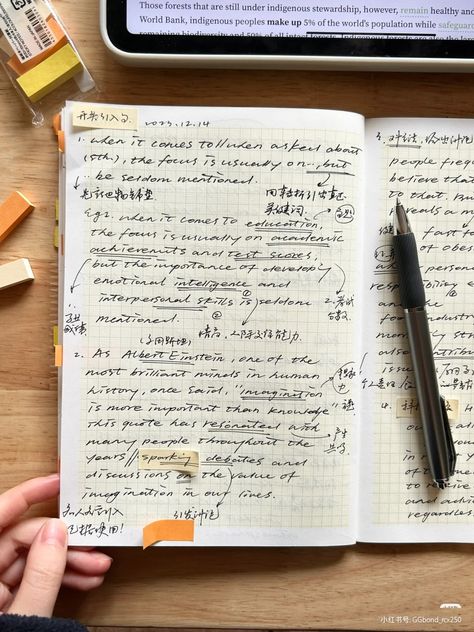 Those forests that are still under indigenous stewardship, however, remain healthy and
World Bank, indigenous peoples make up 5% of the world's population while safeguard
开头引入句
2023.12.14
1. when it comes to/when asked about
(sth.), the focus is usually on ..., but
be seldom mentioned.
用转折引出真正
关键词
Eg: when it comes to education,
the focus is usually on academic
achievements and test scores,
but the importance of develop
emotional intelligence and
interpersonal skills is seldom
mentioned.
1. 学业成绩
2. 考试分数
① ②
情商, 人际交际能力
(爱因斯坦)
2. As Albert Einstein, one of the
most brilliant minds in human
history, once said, "imagination
is more important than knowledge"
This quote has resonated with
many people throughout the
years, sparking debates and
discussions on the value of
imagination in our lives.
想象力
产生共鸣
名人名言引入
引发讨论
3.
people freq
believe that
to that. Bu
reveals a
fast
of obes
person
responsibility
and the
food indust
contribu
4.
our
of the
to receive
and advic
regardless
小红书号: GGbond_rcx250